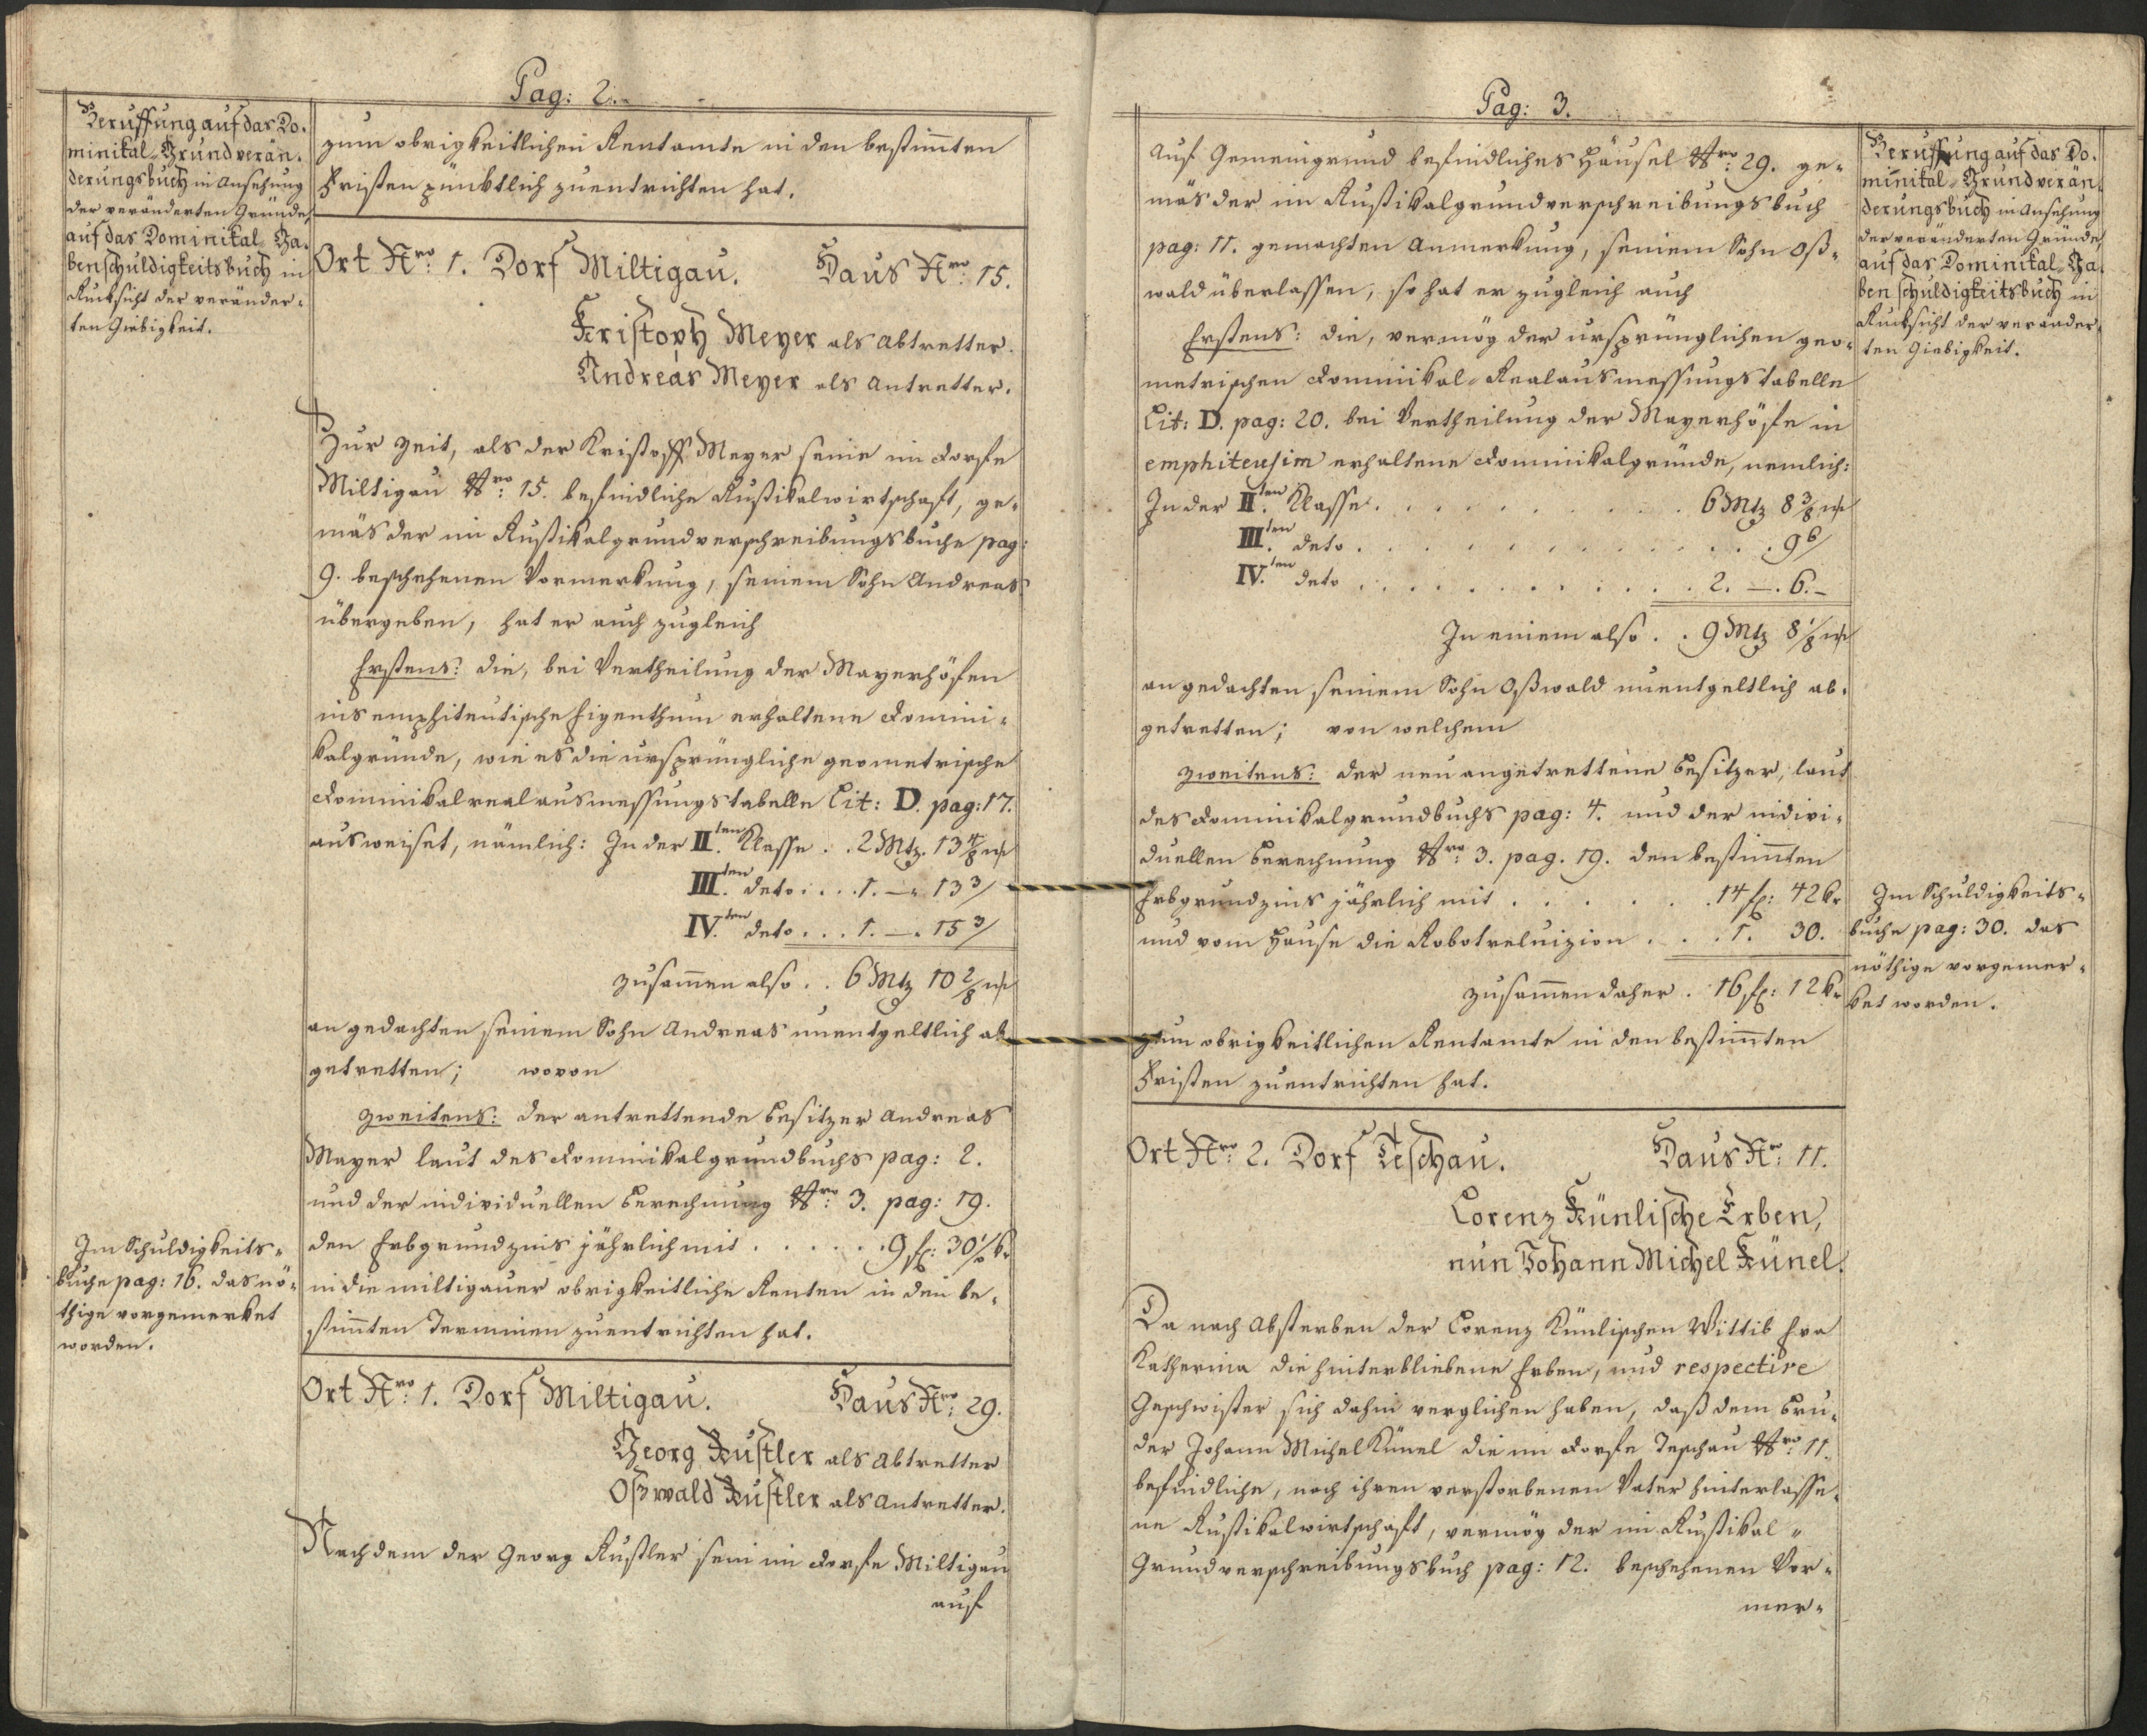 Pag: 2.
Beruffung auf das Do-
minikal-Grundverän-
derungsbuch in Ansehung
der veränderten Gründe,
auf das Dominikal-Ga-
benschuldigkeitsbuch in
Rucksicht der veränder-
ten Giebigkeit.
zum obrigkeitlichen Rentamte in den bestim̅ten
Fristen pünktlich zuentrichten hat.
Ort Nro: 1. Dorf Miltigau. Haus Nro: 15.
Kristoph Meyer als Abtretter.
Andreas Meyer als Antretter.
Zur Zeit, als der Kristoff Meyer seine im Dorfe
Miltigau Nro: 15. befindliche Rustikalwirtschaft, ge-
mäs der im Rustikalgrundverschreibungsbuche pag:
9. beschehenen Vormerkung, seinem Sohn Andreas
übergeben, hat er auch zugleich
Erstens: die, bei Vertheilung der Mayerhöfen
ins emphiteutische Eigenthum erhaltene Domini-
kalgründe, wie es die ursprüngliche geometrische
Dominikalrealausmessungstabelle Lit: D. pag: 17.
ausweiset, nämlich: In der II.ten Klasse . . 2 Mtz. 13 4/8 ml
III.ten deto . . . . 1. — 13 3/
IV.ten deto . . . 1. — 15 3/
zusam̅en also . . 6 Mtz 10 2/8 ml
an gedachten seinem Sohn Andreas unentgeltlich ab
getretten; wovon
zweitens: der antrettende Besitzer Andreas
Mayer laut des Dominikalgrundbuchs pag: 2.
und der individuellen Berechnung Nro: 3. pag: 19.
den Erbgrundzins jährlich mit . . . . . . 9 fl: 30 1/8 kr
in die miltigauer obrigkeitliche Renten in den be-
stim̅ten Terminen zuentrichten hat.
Im Schuldigkeits-
buche pag: 16. das nö-
thige vorgemerket
worden.
Ort Nro: 1. Dorf Miltigau. Haus Nro: 29.
Georg Kustler als Abtretter
Oßwald Kustler als Antretter.
Nachdem der Georg Kustler sein im Dorfe Miltigau
auf
Pag: 3.
auf Gemeingrund befindliches Häusel Nro: 29. ge-
mäs der im Rustikalgrundverschreibungsbuch
pag: 11. gemachten Anmerkung, seinem Sohn Oß-
wald überlassen, so hat er zugleich auch
Erstens: die, vermög der ursprünglichen geo-
metrischen Dominikal-Realausmessungstabelle
Lit: D. pag: 20. bei Vertheilung der Mayerhöfe in
emphiteusim erhaltene Dominikalgründe, nemlich:
In der II.ten Klasse . . . . . . . . . . . 6 Mtz 8 3/8 ml
III.ten deto . . . . . . . . . . . . . . 9 6/
IV.ten deto . . . . . . . . . . . . 2. — . 6. —
In einem also . . 9 Mtz 8 1/8 ml
an gedachten seinem Sohn Oßwald unentgeltlich ab-
getretten; von welchem
zweitens: der neu angetrettene Besitzer, laut
des Dominikalgrundbuchs pag: 4. und der indivi-
duellen Berechnung Nro: 3. pag. 19. den bestim̅ten
Erbgrundzins jährlich mit . . . . . . . 14 fl: 42 kr
und vom Hause die Robotreluizion . . . . 1. 30.
zusam̅en daher . 16 fl: 12 kr
zum obrigkeitlichen Rentamte in den bestim̅ten
Fristen zuentrichten hat.
Beruffung auf das Do-
minikal-Grundverän-
derungsbuch in Ansehung
der veränderten Gründe,
auf das Dominikal-Ga-
benschuldigkeitsbuch in
Rucksicht der veränder-
ten Giebigkeit.
Im Schuldigkeits-
buche pag: 30. das
nöthige vorgemer-
ket worden.
Ort Nro: 2. Dorf Teschau. Haus Nro: 11.
Lorenz Künlische Erben,
nun Johann Michel Künel.
Da nach Absterben der Lorenz Künlischen Wittib Eva
Katherina die hinterbliebene Erben, und respective
Geschwister sich dahin verglichen haben, daß dem Bru-
der Johann Michel Künel die im Dorfe Teschau Nro: 11.
befindliche, nach ihren verstorbenen Vater hinterlasse-
ne Rustikalwirtschaft, vermög der im Rustikal-
Grundverschreibungsbuch pag: 12. beschehenen Vor-
mer-